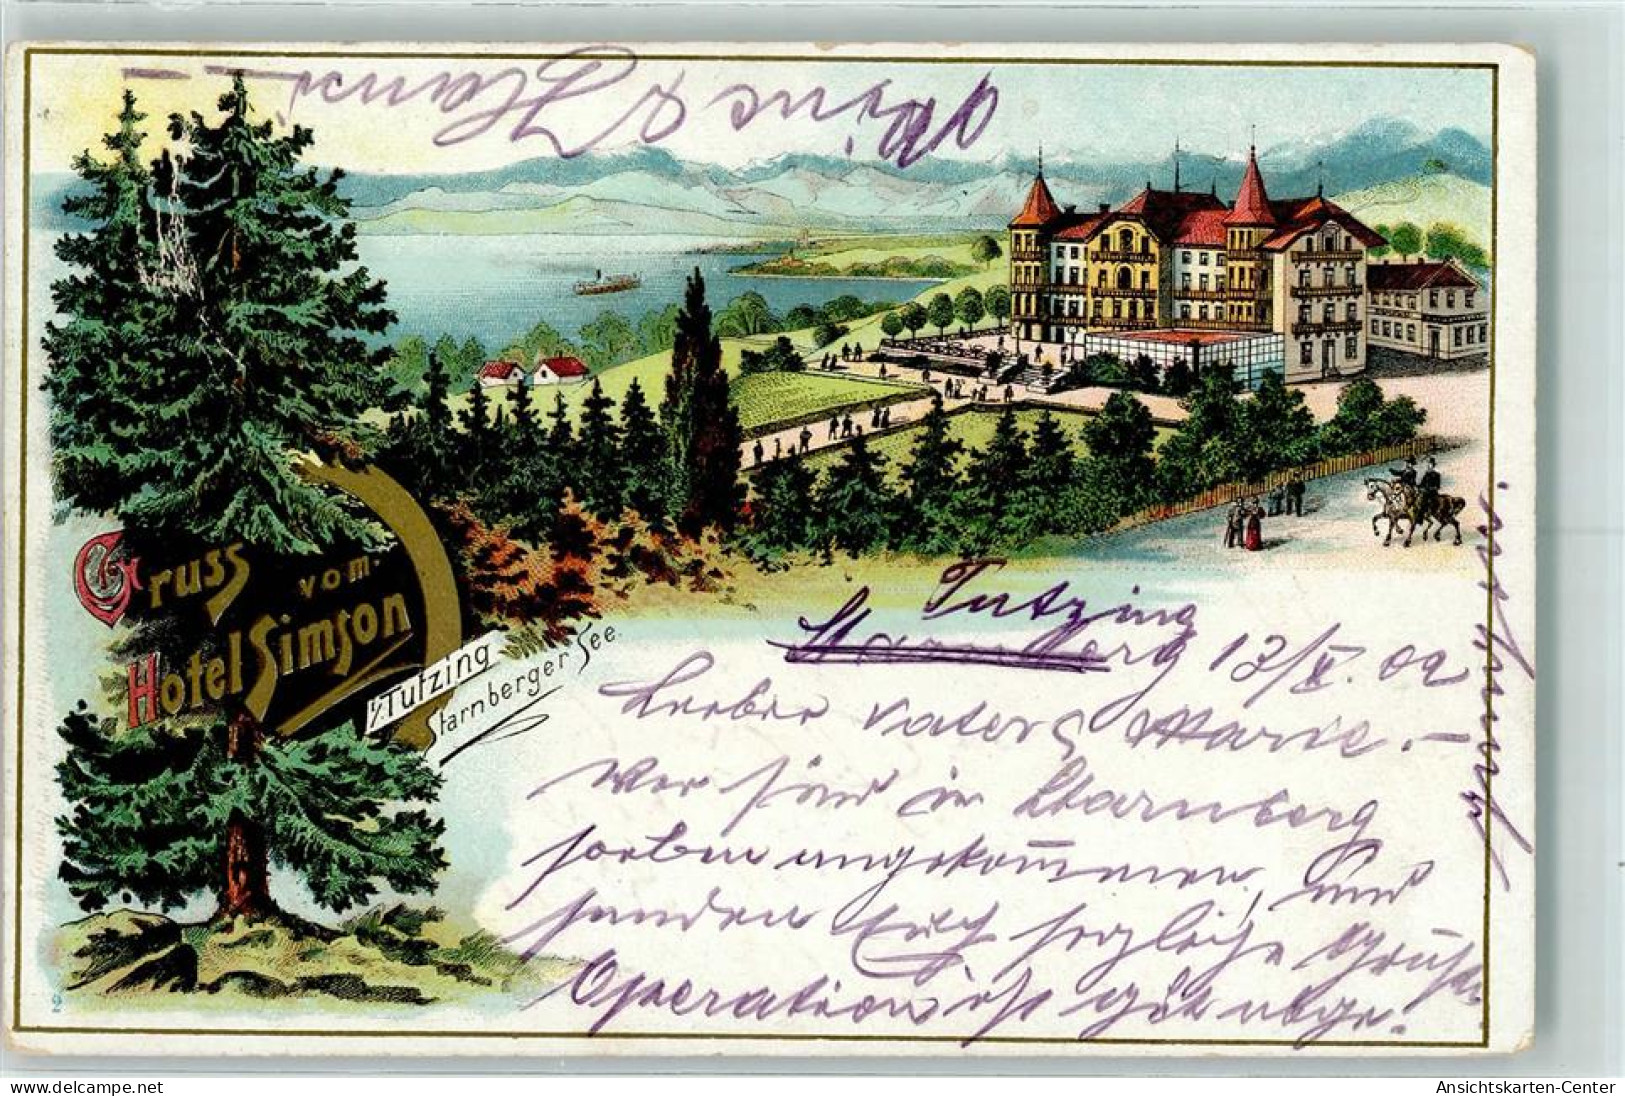 Gruss
vom
Hotel Simson
i/Tutzing
Starnberger See.
Tutzing
Starnberg 13/V. 02
Lieber Vater & Marie. –
Wir sind in Starnberg
soeben angekommen, und
senden Euch herzliche Grüsse
Operation ist gut abge-
2
delcampe.net
Ansichtskarten-Center